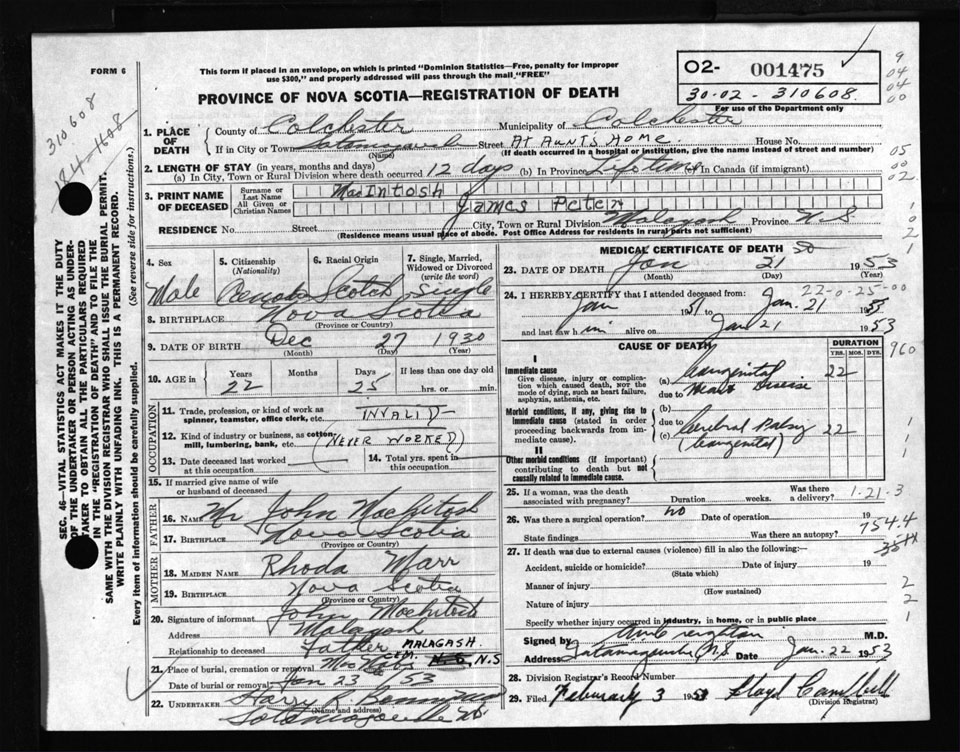 FORM 6
This form if placed in an envelope, on which is printed "Dominion Statistics—Free, penalty for improper
use $300," and properly addressed will pass through the mail "FREE"
PROVINCE OF NOVA SCOTIA—REGISTRATION OF DEATH
02- 001475
30-02-310608
For use of the Department only
310608
9
04
04
00
05
00
02
1. PLACE OF DEATH County of Colchester Municipality of Colchester
If in City or Town Tatamagouche (Name) Street At Aunt's Home House No.
(If death occurred in a hospital or institution, give the name instead of street and number)
2. LENGTH OF STAY (in years, months and days)
(a) In City, Town or Rural Division where death occurred 12 days (b) In Province Lifetime (c) In Canada (if immigrant)
3. PRINT NAME OF DECEASED
Surname or Last Name MacIntosh
All Given or Christian Names James Peter
RESIDENCE No. Street City, Town or Rural Division Malagash Province N.S
(Residence means usual place of abode. Post Office Address for residents in rural parts not sufficient)
SEC. 46—VITAL STATISTICS ACT MAKES IT THE DUTY
OF THE UNDERTAKER OR PERSON ACTING AS UNDER-
TAKER TO OBTAIN ALL THE PARTICULARS REQUIRED
IN THE "REGISTRATION OF DEATH" AND TO FILE THE
SAME WITH THE DIVISION REGISTRAR WHO SHALL ISSUE THE BURIAL PERMIT.
WRITE PLAINLY WITH UNFADING INK. THIS IS A PERMANENT RECORD.
Every item of information should be carefully supplied. (See reverse side for instructions.)
4. Sex Male
5. Citizenship (Nationality)
6. Racial Origin Scotch
7. Single, Married, Widowed or Divorced (write the word) Single
8. BIRTHPLACE Nova Scotia
(Province or Country)
9. DATE OF BIRTH Dec 27 1930
(Month) (Day) (Year)
10. AGE in Years 22 Months Days 25 If less than one day old hrs. or min.
OCCUPATION
11. Trade, profession, or kind of work as spinner, teamster, office clerk, etc. INVALID
12. Kind of industry or business, as cotton-mill, lumbering, bank, etc. (NEVER WORKED)
13. Date deceased last worked at this occupation
14. Total yrs. spent in this occupation
15. If married give name of wife or husband of deceased
FATHER
16. Name Mr John MacIntosh
17. Birthplace Nova Scotia
(Province or Country)
MOTHER
18. Maiden Name Rhoda Marr
19. Birthplace Nova Scotia
(Province or Country)
20. Signature of informant John MacIntosh
Address Malagash
Relationship to deceased Father
21. Place of burial, cremation or removal MALAGASH. CEM. N.S
Date of burial or removal Jan 23 / 53
22. Undertaker Harry
(Name and address)
Tatamagouche NS
MEDICAL CERTIFICATE OF DEATH
23. DATE OF DEATH Jan 21 1953
(Month) (Day) (Year)
24. I HEREBY CERTIFY that I attended deceased from: 22-0-25-00
Jan 1951 to Jan. 21 1953
and last saw him alive on Jan 21 1953
CAUSE OF DEATH
DURATION
YRS. MOS. DYS.
960
I
Immediate cause
Give disease, injury or complication which caused death, NOT the mode of dying, such as heart failure, asphyxia, asthenia, etc.
(a) Congenital Heart Disease 22
due to
Morbid conditions, if any, giving rise to immediate cause (stated in order proceeding backwards from immediate cause).
(b)
due to
(c) Cerebral Palsy (Congenital) 22
II
Other morbid conditions (if important) contributing to death but not causally related to immediate cause.
25. If a woman, was the death associated with pregnancy? Duration weeks. Was there a delivery? 1-21-3
26. Was there a surgical operation? no Date of operation 19
State findings Was there an autopsy?
754.4
27. If death was due to external causes (violence) fill in also the following:—
Accident, suicide or homicide? (State which) Date of injury 19
Manner of injury (How sustained) 2
Nature of injury 2
Specify whether injury occurred in industry, in home, or in public place 1
Signed by Creighton M.D.
Address Tatamagouche N.S Date Jan. 22 1953
28. Division Registrar's Record Number
29. Filed February 3 1953 Lloyd Campbell
(Division Registrar)